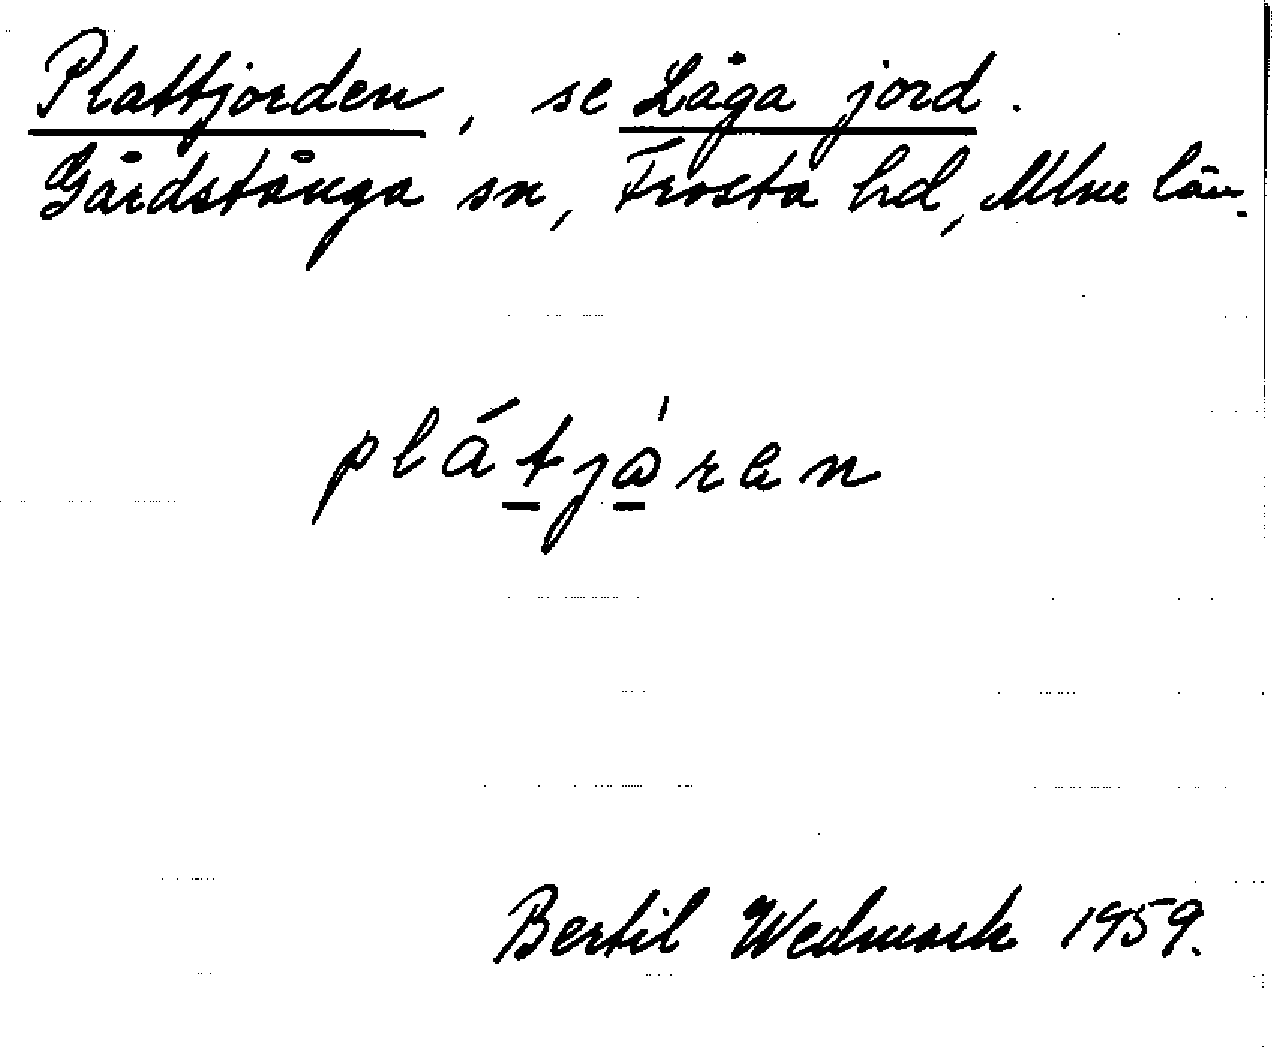 Plattjorden, se Låga jord.
Gårdstånga sn, Frosta hd, Mlm län.
plátjåran
Bertil Wedmark 1959.